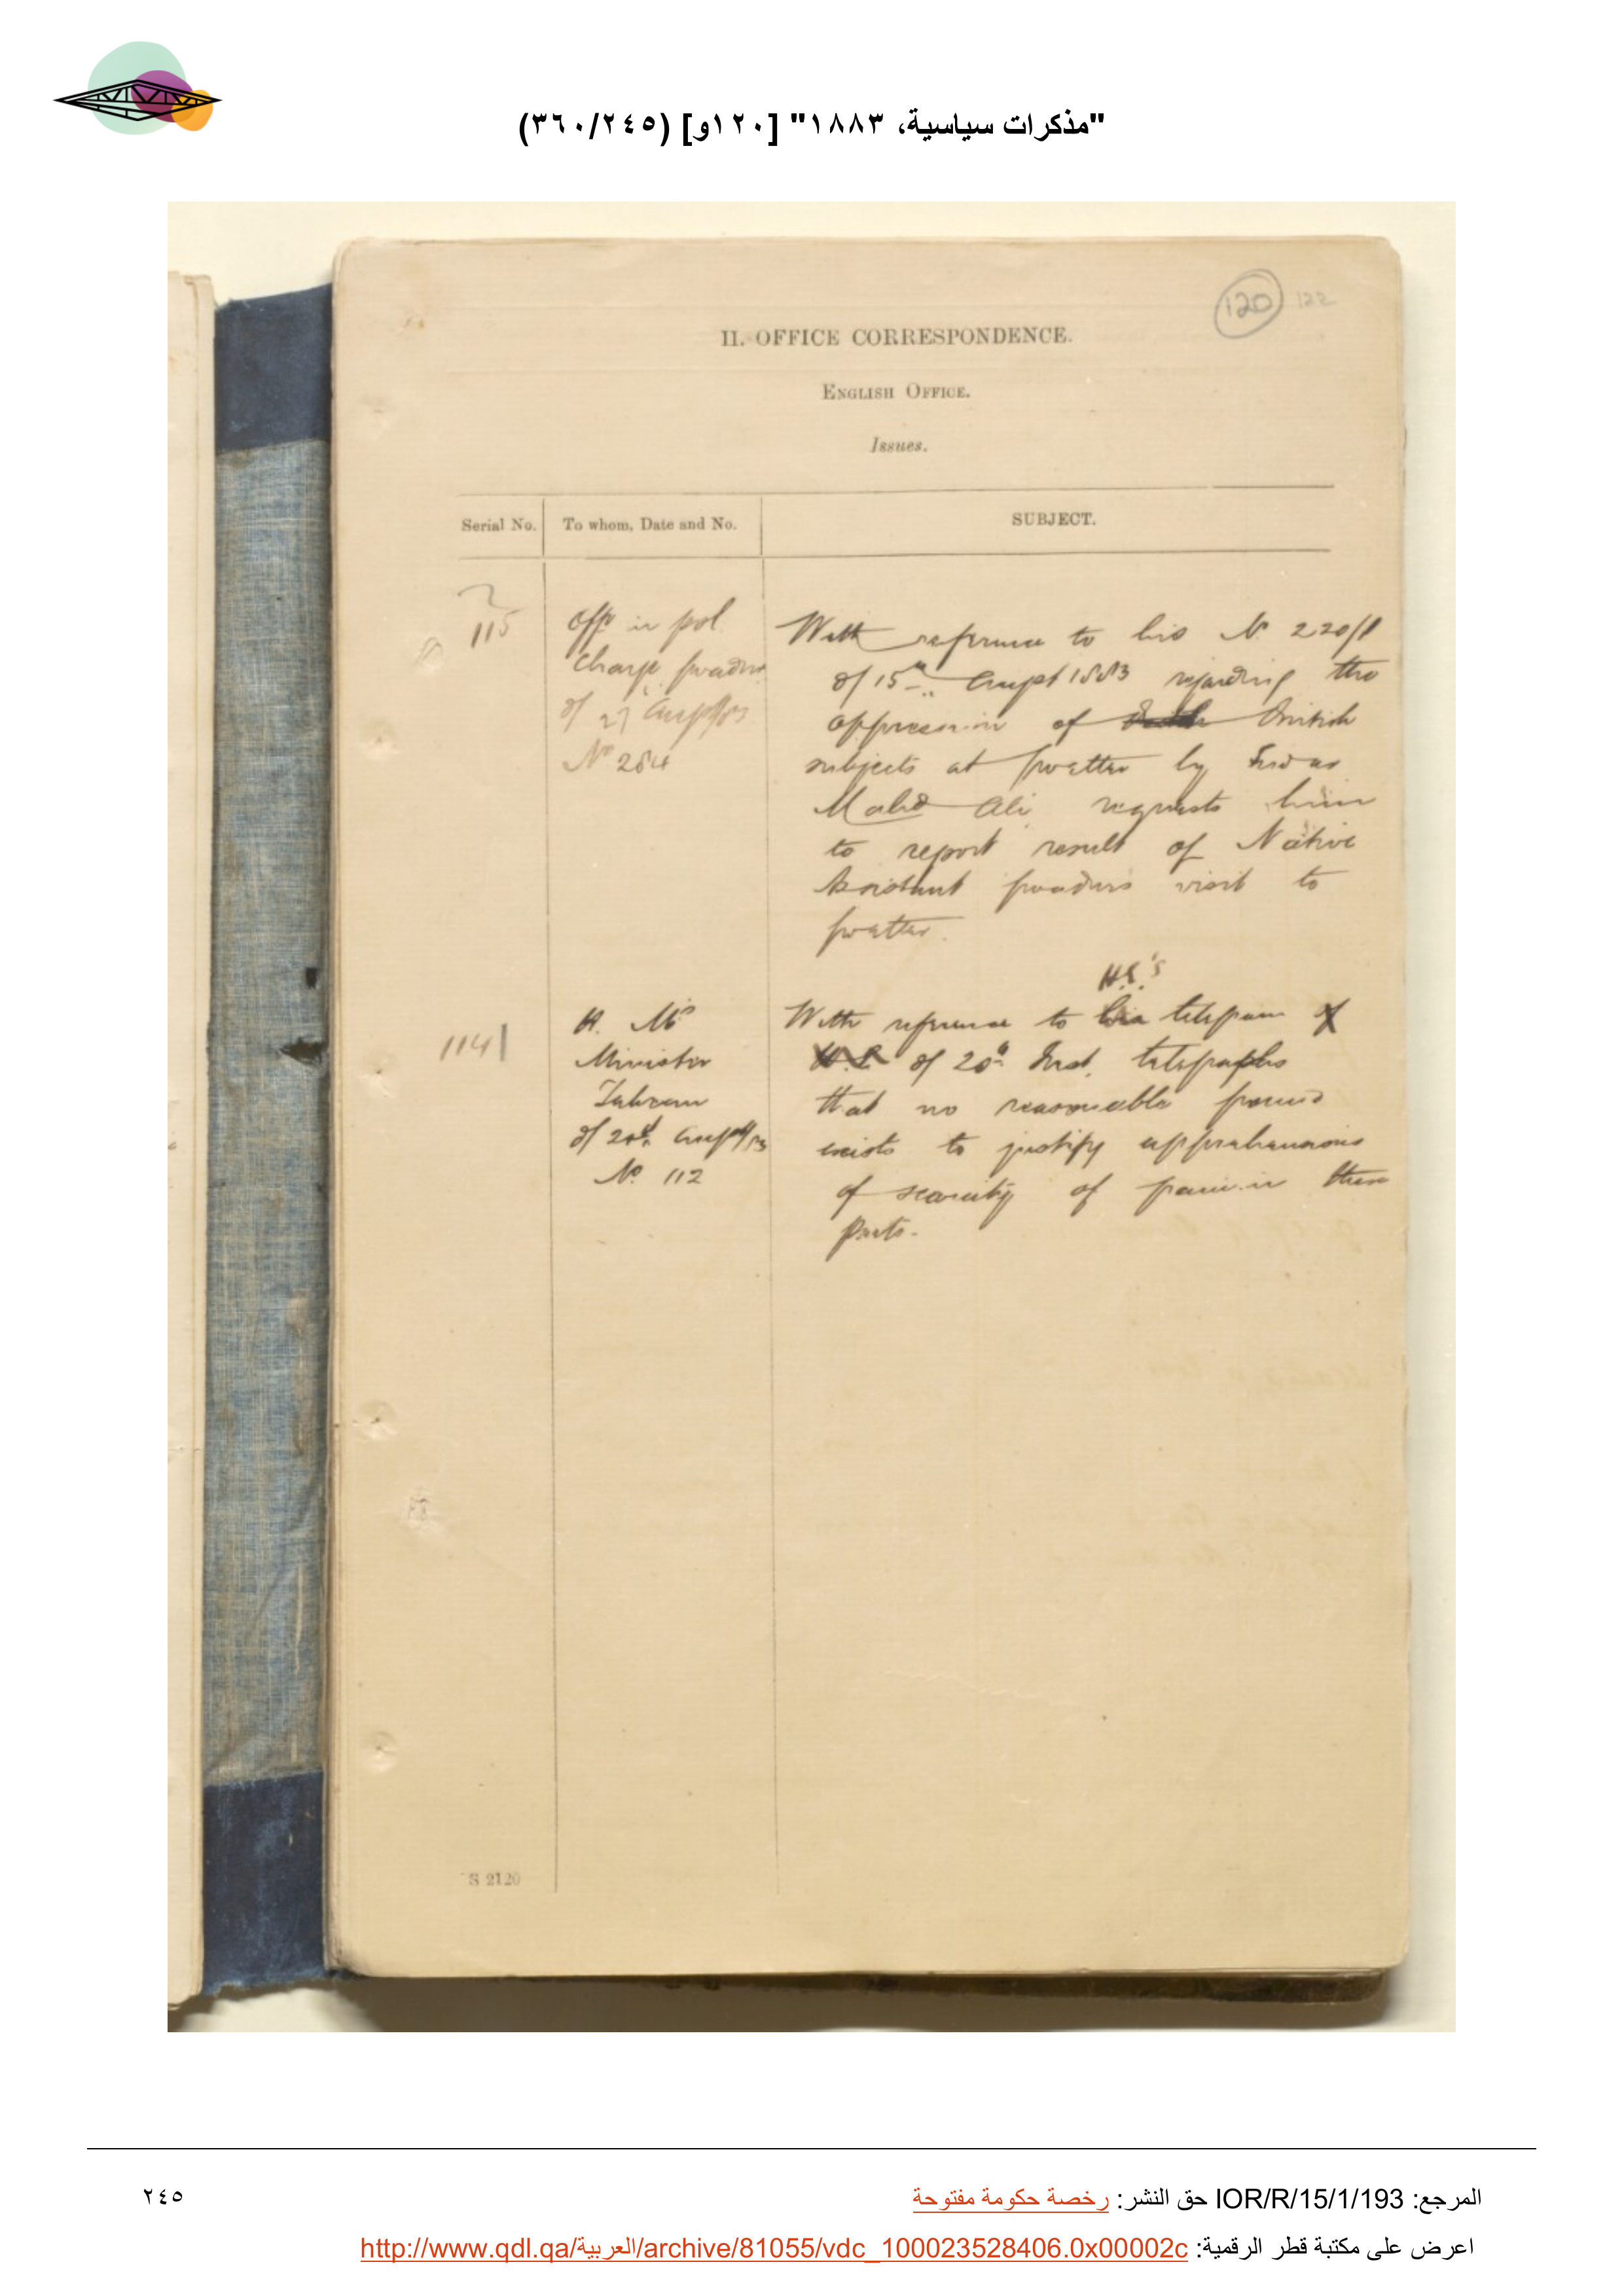 "مذكرات سياسية، ١٨٨٣" [١٢٠و] (٣٦٠/٢٤٥)
120 122
II. OFFICE CORRESPONDENCE.
ENGLISH OFFICE.
Issues.
Serial No.
To whom, Date and No.
SUBJECT.
115
Offr in pol
Charge Gwadur
of 27 August/83
No 284
With reference to his No 220/1
of 15th August 1883 regarding the
oppression of British
subjects at Gwetter by Sirdar
Mahd Ali requests him
to report result of Native
Assistant Gwadur's visit to
Gwetter.
1141
H. M's
Minister
Tehran
of 20th August/83
No. 112
H.E.'s
With reference to his telegram of
H.E. of 20th Inst. telegraphs
that no reasonable ground
exists to justify apprehensions
of scarcity of grain in these
parts.
S 2120
المرجع: IOR/R/15/1/193 حق النشر: رخصة حكومة مفتوحة
٢٤٥
اعرض على مكتبة قطر الرقمية: http://www.qdl.qa/العربية/archive/81055/vdc_100023528406.0x00002c